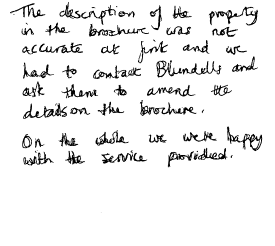 The description of the property
in the brochure was not
accurate at first and we
had to contact Blundells and
ask them to amend the
details on the brochure.
On the whole we were happy
with the service provided.